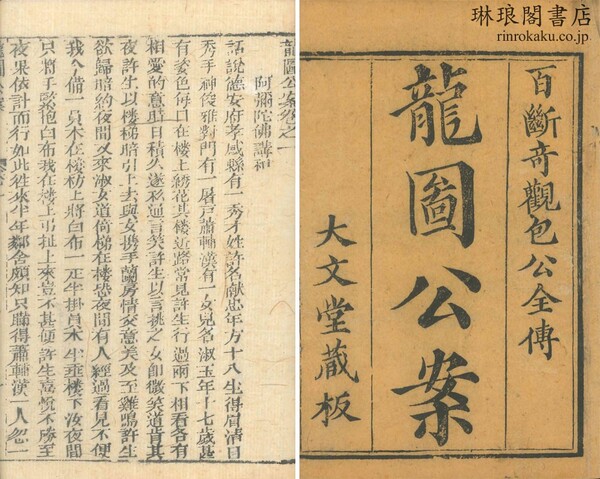 琳琅閣書店
rinrokaku.co.jp
百斷奇觀包公全傳
龍圖公案
大文堂藏板
龍圖公案卷之一
阿彌陀佛講和
話說德安府孝感縣有一秀才姓許名献忠年方十八生得眉清目
秀手神俊雅對門有一屠戶蕭輔漢有一女兒名淑玉年十七歲甚
有姿色每日在樓上綉花其樓近路常見許生行過兩下相看各有
相愛的意時日積久遂私通言笑許生以言挑之女即微笑道肯其
夜許生以樓梯暗引上去與女携手蘭房情交意美及至雞鳴許生
欲歸暗約夜間又來淑女道倚梯在樓恐夜間有人經過看見不便
我今備一員木在樓枋上將白布一疋半掛員木半垂樓下汝夜間
只將手緊抱白布我在樓上弔扯上來豈不甚便許生喜悅不勝至
夜果依計而行如此往來半年鄰舍頗知只瞞得蕭輔漢一人忽一